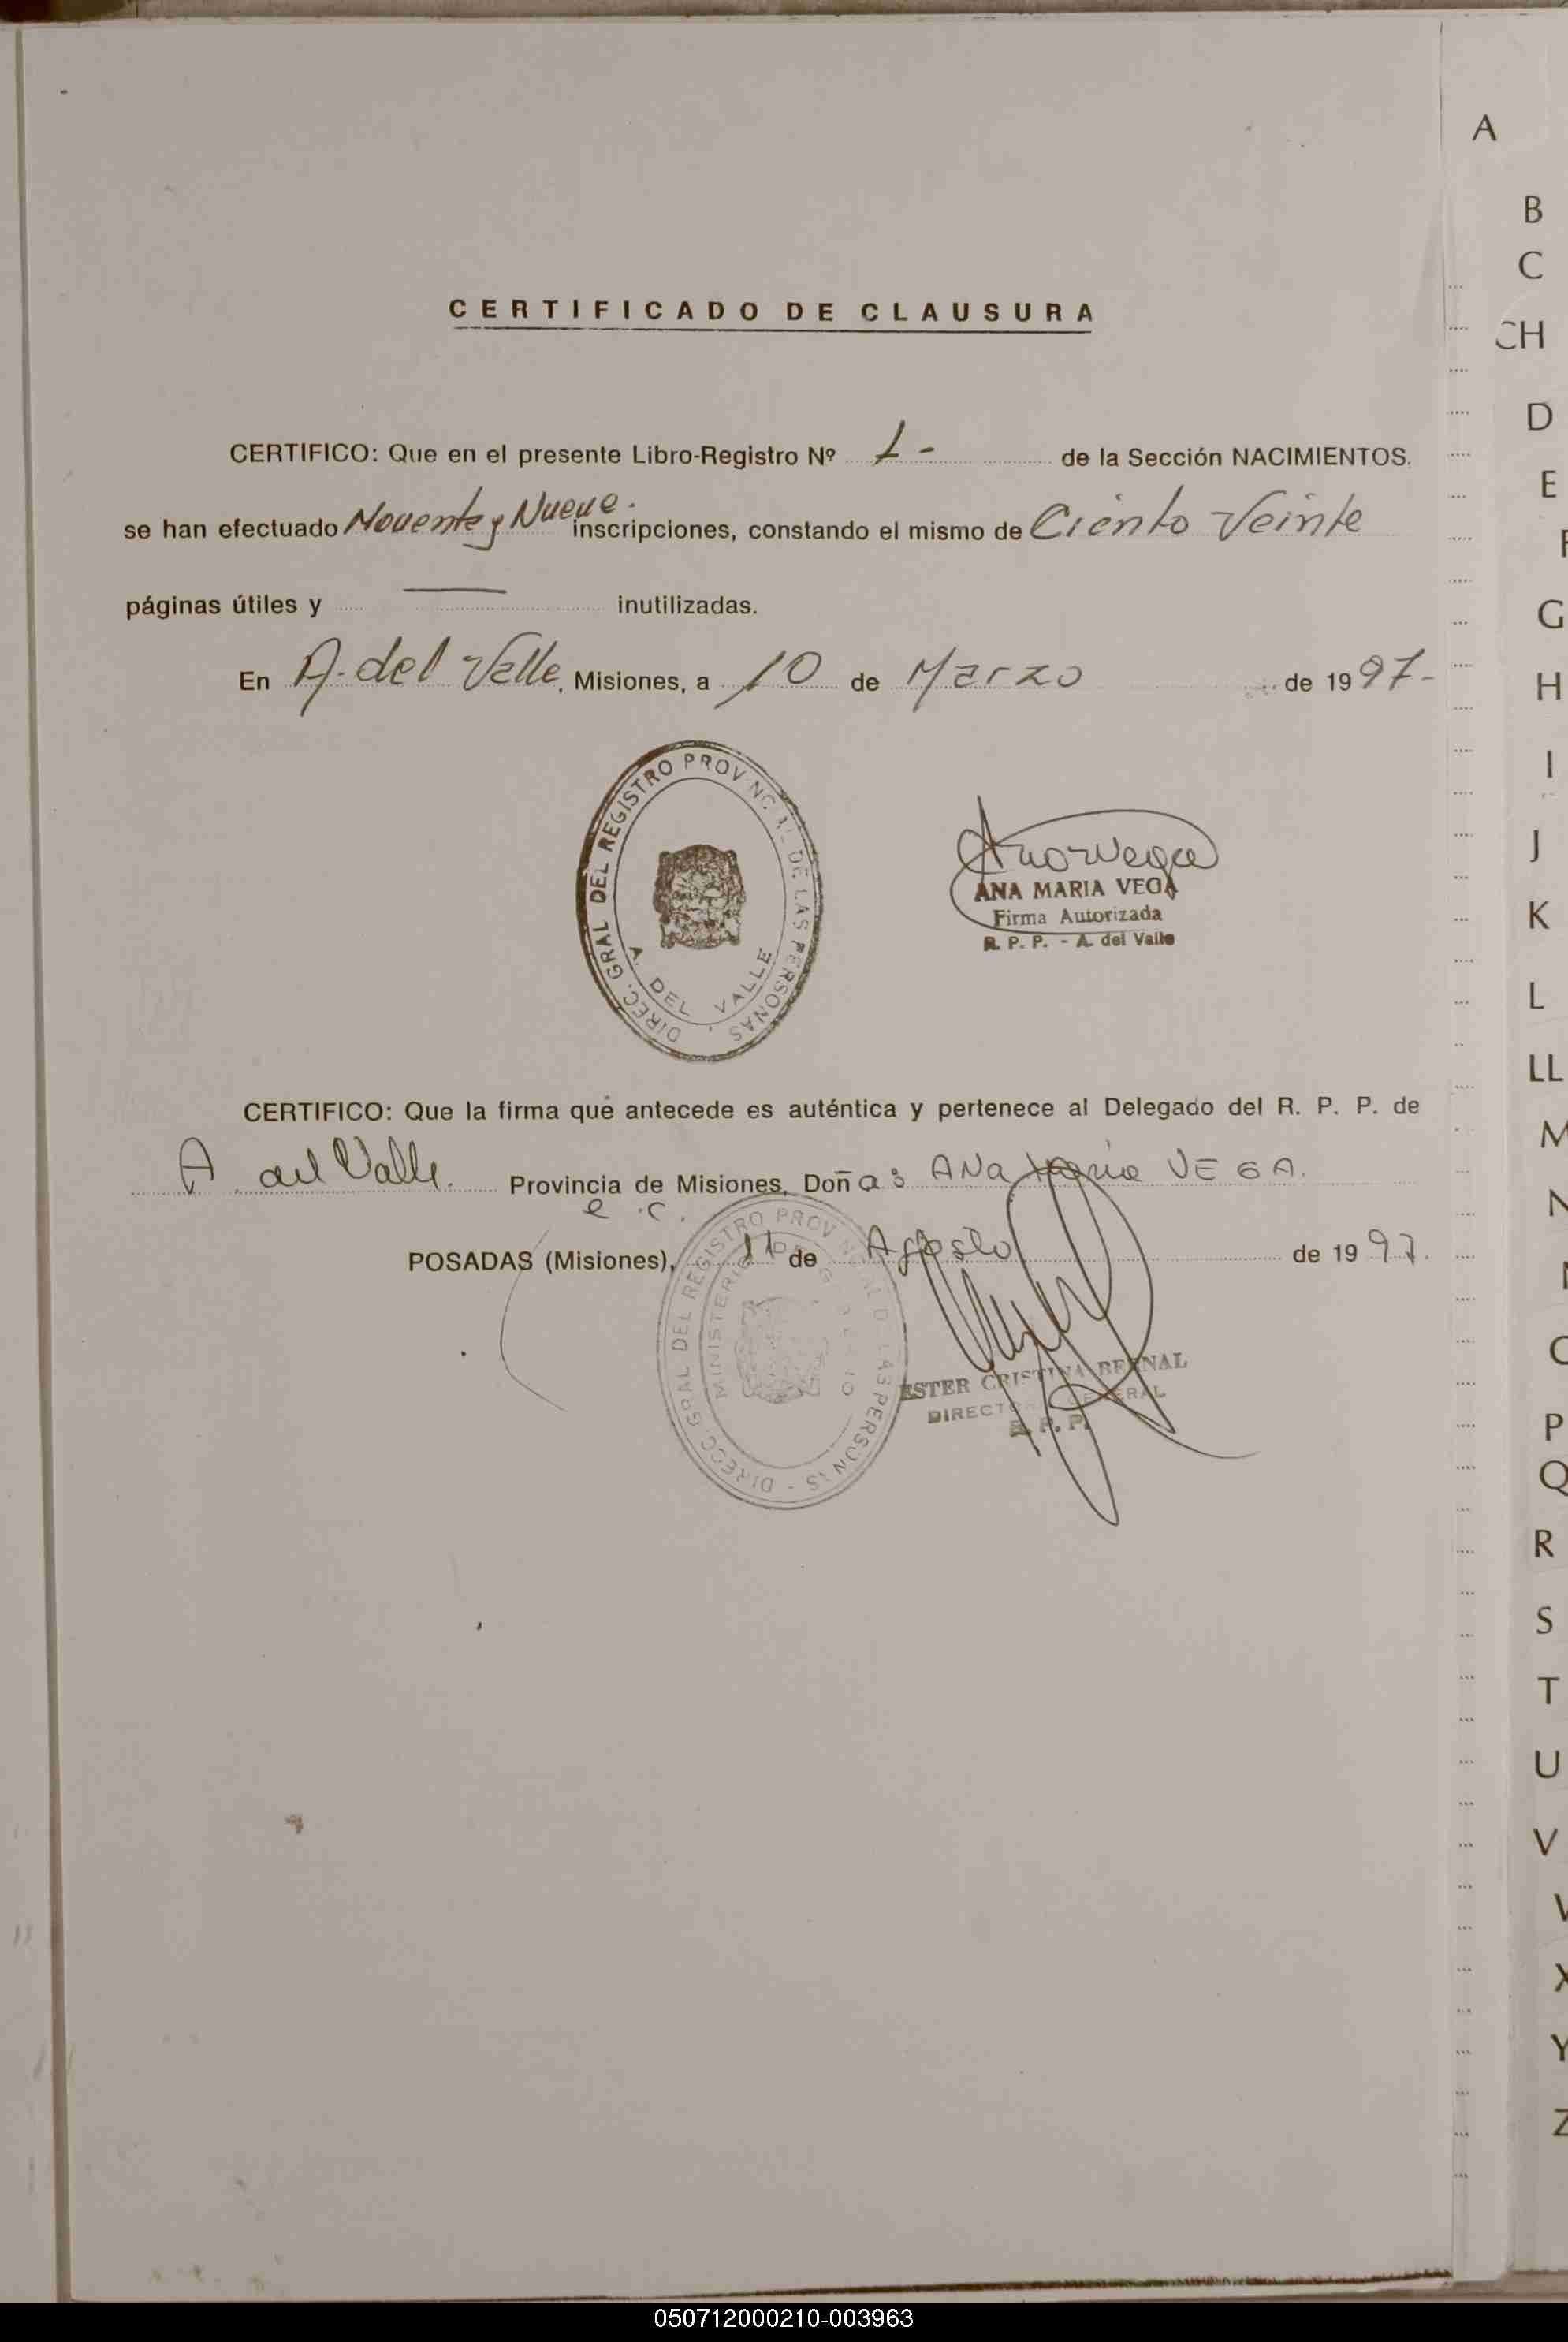 CERTIFICADO DE CLAUSURA
CERTIFICO: Que en el presente Libro-Registro Nº 1- de la Sección NACIMIENTOS.
se han efectuado Noventa y Nueve. inscripciones, constando el mismo de Ciento Veinte
páginas útiles y —— inutilizadas.
En A. del Valle, Misiones, a 10 de Marzo de 1997-
DIREC. GRAL DEL REGISTRO PROVINCIAL DE LAS PERSONAS
A. DEL VALLE
ANA MARIA VEGA
Firma Autorizada
R. P. P. - A. del Valle
CERTIFICO: Que la firma que antecede es auténtica y pertenece al Delegado del R. P. P. de
A. del Valle. Provincia de Misiones, Doña: ANA Maria VEGA.
e.c.
POSADAS (Misiones), 11 de Agosto de 1997.
DIRECC. GRAL DEL REGISTRO PROVINCIAL DE LAS PERSONAS
MINISTERIO DE
ESTER CRISTINA BERNAL
DIRECTORA GENERAL
R. P. P.
A
B
C
CH
D
E
F
G
H
I
J
K
L
LL
M
N
O
P
Q
R
S
T
U
V
X
Y
Z
050712000210-003963